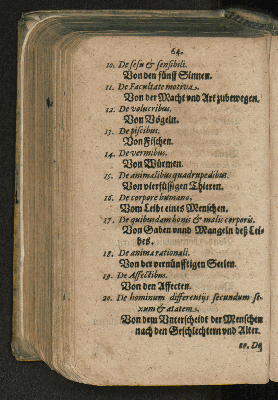 64.
10. De sesu & sensibili.
Von den fünff Sinnen.
11. De Facultate motiva.
Von der Macht vnd Art zubewegen.
12. De volucribus.
Von Vögeln.
13. De piscibus.
Von Fischen.
14. De vermibus.
Von Würmen.
15. De animalibus quadrupedibus.
Von vierfüssigen Thieren.
16. De corpore humano.
Vom Leibe eines Menschen.
17. De quibusdam bonis & malis corporis.
Von Gaben vnnd Mangeln deß Lei-
bes.
18. De anima rationali.
Von der vernünfftigen Seelen.
19. De Affectibus.
Von den Affecten.
20. De hominum differentijs secundum se-
xum & ætatem.
Von dem Vnterscheidt der Menschen
nach den Geschlechtern vnd Alter.
20. De